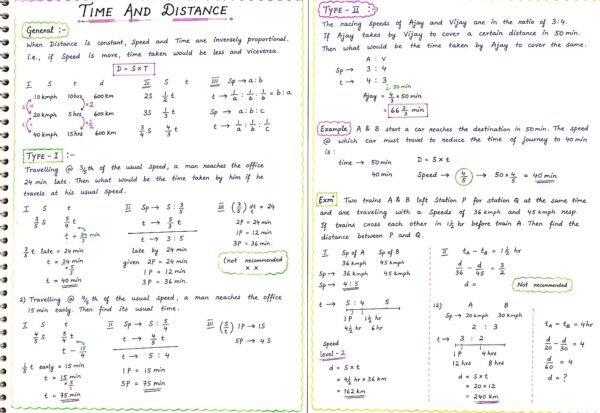 TIME AND DISTANCE
General :-
When Distance is constant, Speed and Time are inversely proportional.
i.e., if Speed is more, time taken would be less and viceversa.
D = S x T
I S t d
10 kmph 10hrs 600 km
20 kmph 5hrs 600 km
40 kmph 15hrs 600 km
x2
x1/2
II S t
2S 1/2 t
3S 1/3 t
3/4 S 4/3 t
III Sp → a : b
t → 1/a : 1/b = b : a
Sp → a : b : c
t → 1/a : 1/b : 1/c
TYPE - I :-
Travelling @ 3/5th of the usual speed, a man reaches the office
24 min late. Then what would be the time taken by him if he
travels at his usual speed.
I S t
3/5 S 5/3 t
t + 24 min
2/3 t late = 24 min
t = 24 min
t = 40 min
II Sp → 5 : 3/5
t → 5/3 t
t → 3 : 5
late by 24 min
given 2P = 24 min
1P = 12 min
3P = 36 min.
III (3/5) = 24
2P = 24 min
1P = 12 min
3P = 36 min.
(not recommended
x x
2) Travelling @ 4/5 th of the usual speed, a man reaches the office
15 min early. Then find its usual time.
I S t
4/5 S
t - 15
1/5 t early = 15 min
t = 15 min
t = 75 min
II Sp → S : 5/4
t →
t → 5 : 4
1P = 15 min
5P = 75 min
III (5/4) 1P → 15
5P → 45
TYPE - II :-
The racing Speeds of Ajay and Vijay are in the ratio of 3:4.
If Ajay takes by Vijay to cover a certain distance in 50 min.
Then what would be the time taken by Ajay to cover the same.
A : V
Sp → 3 : 4
t → 4 : 3
50 min
Ajay = 4/3 x 50 min
= 66 2/3 min
Example) A & B start a car reaches the destination in 50 min. The speed
@ which car must travel to reduce the time of journey to 40 min
is :
time → 50 min
40 min
D = S x t
Speed → 4/5 → 50 x 4/5 = 40 min
Exm' Two trains A & B left Station P for station Q at the same time
and are traveling with a Speeds of 36 kmph and 45 kmph resp.
If trains cross each other in 1 1/2 hr before train A Then find the
distance between P and Q.
I Sp of A Sp of B
36 kmph 45 kmph
Sp → 36 kmph 45 kmph
Sp → 4 : 5
t → 5 : 4
1P 1 1/2 hr
4 1/2 hr 6hr
Speed
level-2
d = S x t
= 4 1/2 hr x 36 km
= 162 km
II tA - tB = 1 1/2 hr
d/36 - d/45 = 3/2
d =
Not recommended
12) A B
Sp → 20 kmph 30 kmph
2 : 3
t → 3 : 2
1P 4hrs
12 hrs 8 hrs
d = S x t
= 20 x 12
= 240 km
tA - tB = 4hr
d/20 - d/30 = 4
d/60 = 4
d = ?